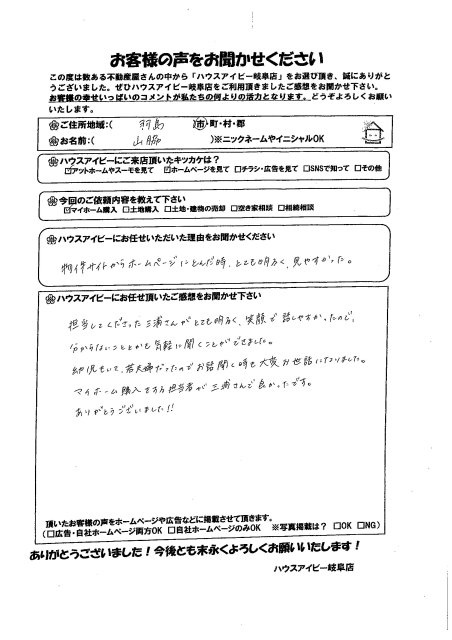 お客様の声をお聞かせください
この度は数ある不動産屋さんの中から「ハウスアイビー岐阜店」をお選び頂き、誠にありがと
うございました。ぜひハウスアイビー岐阜店をご利用頂きましたご感想をお聞かせ下さい。
お客様の幸せいっぱいのコメントが私たちの何よりの活力となります。どうぞよろしくお願い
いたします。
ご住所地域:( 羽島 )市・町・村・郡
お名前:( 山脇 )※ニックネームやイニシャルOK
ハウスアイビーにご来店頂いたキッカケは?
☑アットホームやスーモを見て ☑ホームページを見て □チラシ・広告を見て □SNSで知って □その他
今回のご依頼内容を教えて下さい
☑マイホーム購入 □土地購入 □土地・建物の売却 □空き家相談 □相続相談
ハウスアイビーにお任せいただいた理由をお聞かせください
物件サイトからホームページにとんだ時、とても明るく、見やすかった。
ハウスアイビーにお任せ頂いたご感想をお聞かせ下さい
担当してくださった三浦さんがとても明るく、笑顔で話しやすかったので、
分からないこととかも気軽に聞くことができました。
幼児もいて、若夫婦だったのでお話聞く時も大変お世話になりました。
マイホーム購入をする担当者が三浦さんで良かったです。
ありがとうございました!!
頂いたお客様の声をホームページや広告などに掲載させて頂きます。
(□広告・自社ホームページ両方OK □自社ホームページのみOK ※写真掲載は? □OK □NG)
ありがとうございました!今後とも末永くよろしくお願いいたします!
ハウスアイビー岐阜店